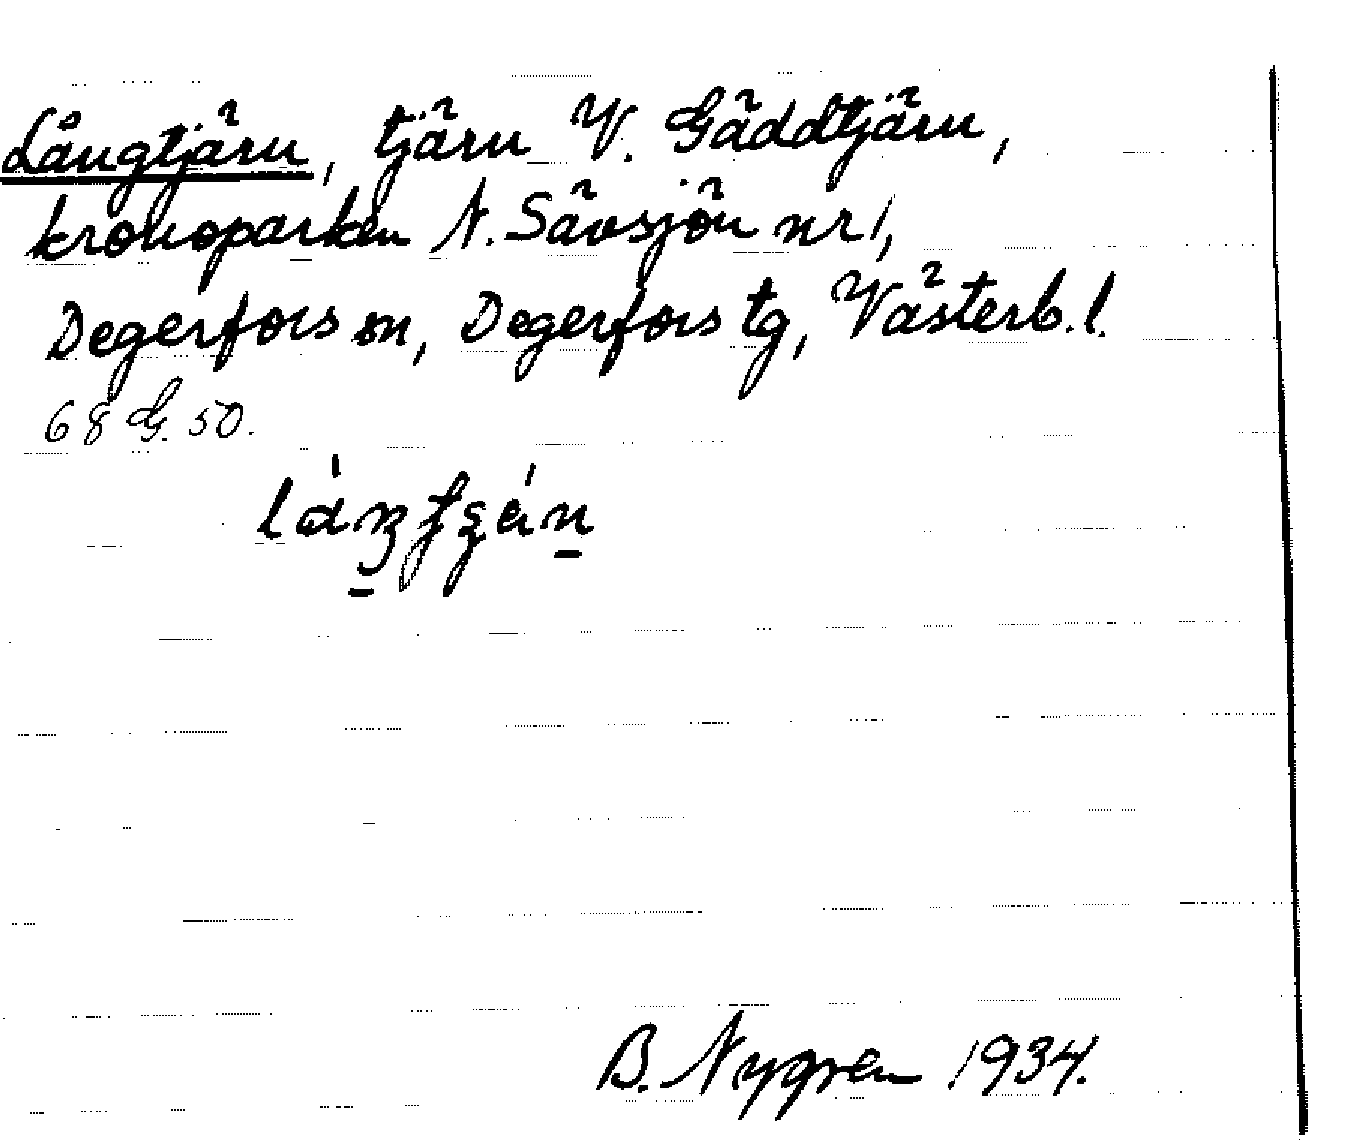 Långtjärn, tjärn V. Gäddtjärn,
kronoparken N. Sävsjön nr 1,
Degerfors sn, Degerfors tg, Västerb. l.
68 G. 50.
B. Nygren 1934.